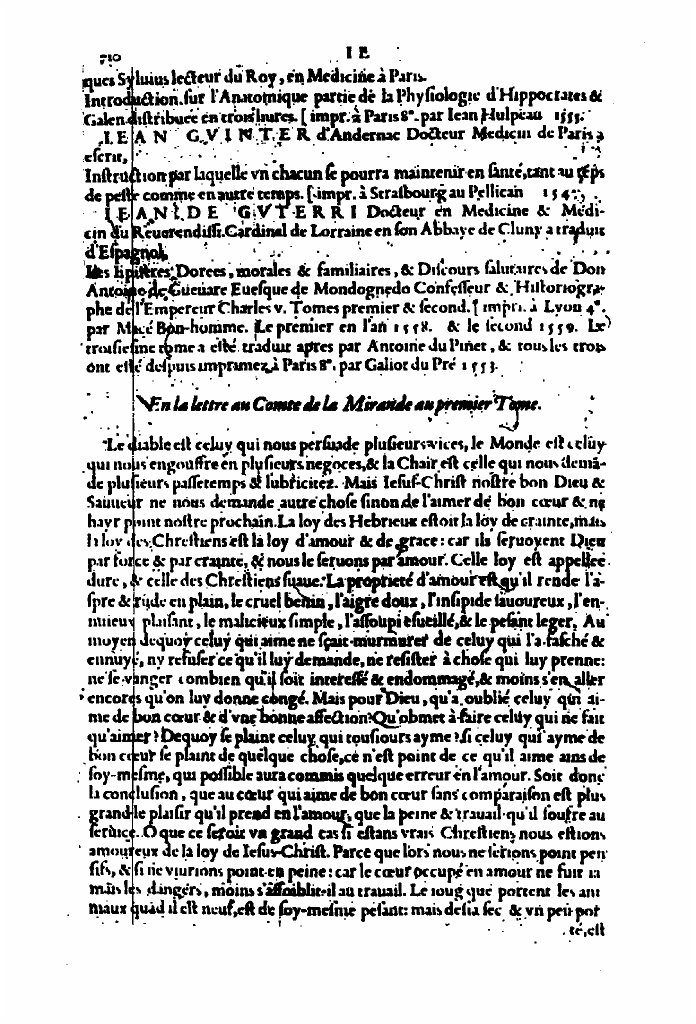 710 IE
ques Syluius lecteur du Roy, en Medicine à Paris.
Introduction sur l'Anatomique partie de la Physiologie d'Hippocrates &
Galen distribuee en trois liures. [impr. à Paris 8°. par Iean Hulpeau 1555.
IEAN GVINTER d'Andernac Docteur Medicin de Paris a
escrit,
Instruction par laquelle vn chacun se pourra maintenir en santé, tant au tẽps
de peste comme en autre temps. [impr. à Strasbourg au Pellican 154
IEAN DE GVTERRI Docteur en Medicine & Medi-
cin du Reuerendiss. Cardinal de Lorraine en son Abbaye de Cluny a traduit
d'Espagnol,
Les Epistres Dorees, morales & familiaires, & Discours salutaires de Don
Antoine de Gueuare Euesque de Mondognedo Confesseur & Historiogra-
phe de l'Empereur Charles v. Tomes premier & second. [impr. à Lyon 4°.
par Macé Bon-homme. Le premier en l'an 1558. & le second 1559. Le
troisiesme tome a esté traduit apres par Antoine du Pinet, & tous les trois
ont esté despuis imprimez à Paris 8°. par Galiot du Pré 1553.
En la lettre au Comte de la Mirande au premier Tome.
Le diable est celuy qui nous persuade plusieurs vices, le Monde est celuy
qui nous engouffre en plusieurs negoces, & la Chair est celle qui nous demã-
de plusieurs passetemps & lubricitez. Mais Iesus-Christ nostre bon Dieu &
Sauueur ne nous demande autre chose sinon de l'aimer de bon cœur & ne
hayr point nostre prochain. La loy des Hebrieux estoit la loy de crainte, mais
la loy des Chrestiens est la loy d'amour & de grace: car ils seruoyent Dieu
par force & par crainte, & nous le seruons par amour. Celle loy est appellee
dure, & celle des Chrestiens suaue. La proprieté d'amour est qu'il rende l'a-
spre & rude en plain, le cruel benin, l'aigre doux, l'insipide sauoureux, l'en-
nuieux plaisant, le malicieux simple, l'assoupi esueillé, & le pesant leger. Au
moyen dequoy celuy qui aime ne sçait murmurer de celuy qui l'a fasché &
ennuyé, ny refuser ce qu'il luy demande, ne resister à chose qui luy prenne:
ne se vanger combien qu'il soit interessé & endommagé, & moins s'en aller
encores qu'on luy donne congé. Mais pour Dieu, qu'a oublié celuy qui ai-
me de bon cœur & d'vne bonne affection? Qu'obmet à faire celuy qui ne fait
qu'aimer? Dequoy se plaint celuy qui tousiours ayme? si celuy qui ayme de
bon cœur se plaint de quelque chose, ce n'est point de ce qu'il aime ains de
soy-mesme, qui possible aura commis quelque erreur en l'amour. Soit donc
la conclusion, que au cœur qui aime de bon cœur sans comparaison est plus
grand le plaisir qu'il prend en l'amour, que la peine & trauail qu'il souffre au
seruice. O que ce seroit vn grand cas si estans vrais Chrestiens nous estions
amoureux de la loy de Iesus-Christ. Parce que lors nous ne serions point pen
sifs, & si ne viurions point en peine: car le cœur occupé en amour ne fuit ia
mais les dangers, moins s'affoiblit-il au trauail. Le ioug que portent les ani
maux quãd il est neuf, est de soy-mesme pesant: mais desia sec & vn peu por
té, est